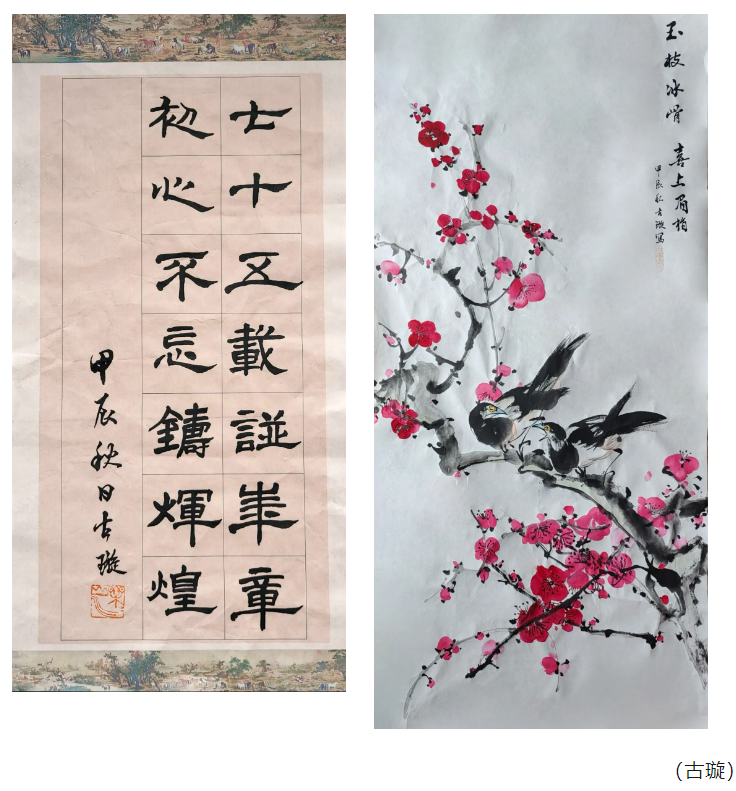 七十五載諩華章
初心不忘鑄煇煌
甲辰秋日古璇
玉枝冰骨 喜上眉梢
甲辰秋古璇寫
（古璇）